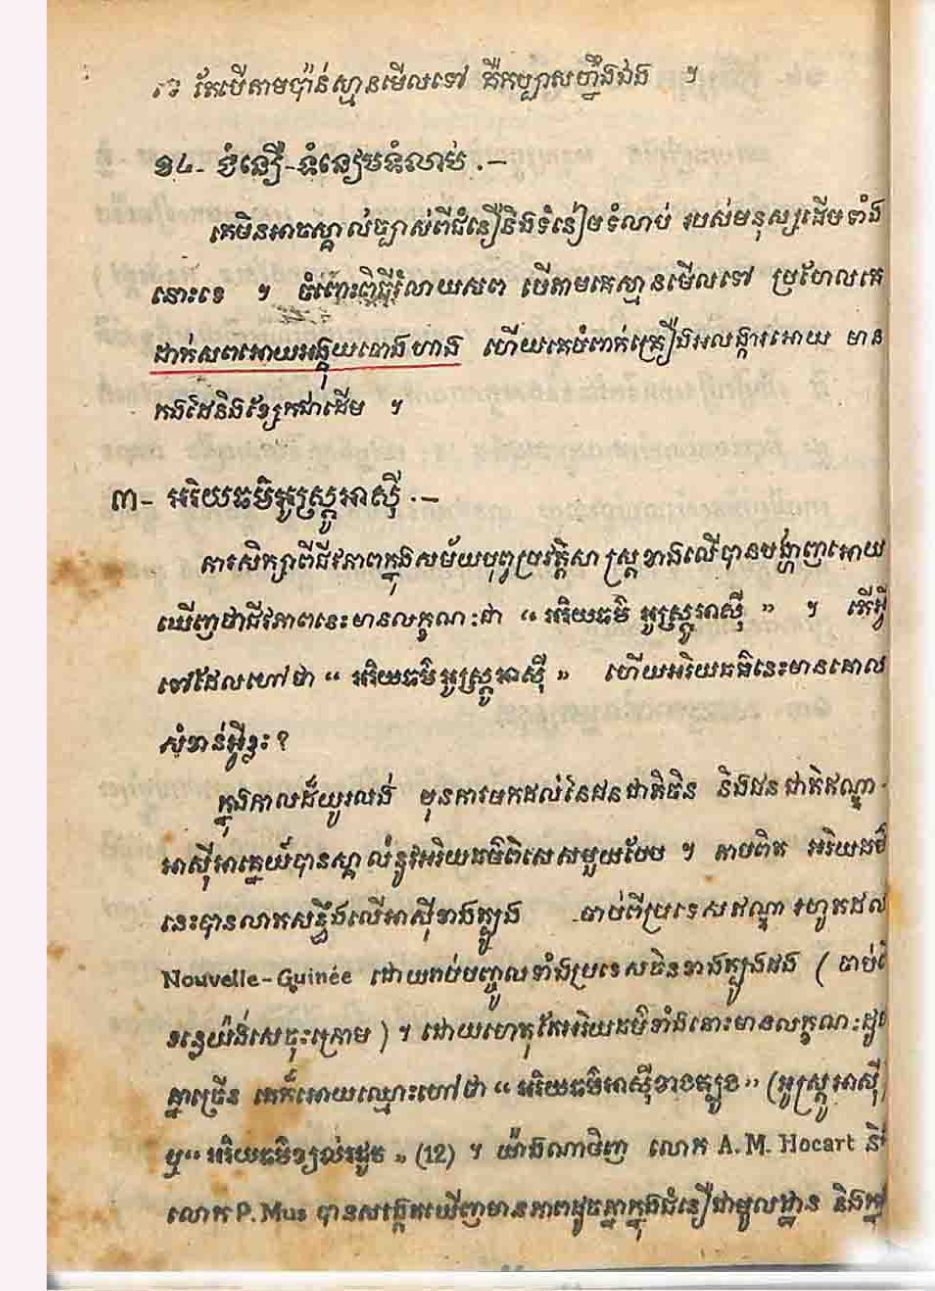 តែបើតាមប៉ាន់ស្មានមើលទៅ គឺកប្បាសហ្នឹងឯង ។
១៤- ជំនឿ-ទំនៀមទំលាប់ .–
គេមិនអាចស្គាល់ច្បាស់ពីជំនឿនិងទំនៀមទំលាប់ របស់មនុស្សដើមទាំង
នោះទេ ។ ចំពោះពិធីរំលាយសព បើតាមគេស្មានមើលទៅ ប្រហែលគេ
ដាក់សពអោយអង្គុយចោងហោង ហើយគេបំពាក់គ្រឿងអលង្ការអោយ មាន
កងដៃនិងខ្សែកជាដើម ។
៣- អរិយធម៌អូស្ត្រូអាស៊ី .–
ការសិក្សាពីជីវភាពក្នុងសម័យបុព្វប្រវត្តិសាស្ត្រខាងលើបានបង្ហាញអោយ
ឃើញថាជីវភាពនេះមានលក្ខណៈជា “ អរិយធម៌ អូស្ត្រូអាស៊ី ” ។ តើអ្វី
ទៅដែលហៅថា “ អរិយធម៌អូស្ត្រូអាស៊ី » ហើយអរិយធម៌នេះមានគោល
សំខាន់អ្វីខ្លះ ?
ក្នុងកាលដ៏យូរលង់ មុនការមកដល់នៃជនជាតិចិន និងជនជាតិឥណ្ឌា
អាស៊ីអាគ្នេយ៍បានស្គាល់នូវអរិយធម៌ពិសេសមួយបែប ។ តាមពិត អរិយធម៌
នេះបានលាតសន្ធឹងលើអាស៊ីខាងត្បូង ចាប់ពីប្រទេសឥណ្ឌា រហូតដល់
Nouvelle-Guinée ដោយរាប់បញ្ចូលទាំងប្រទេសចិនខាងត្បូងផង ( ចាប់ពី
ទន្លេយ៉ង់សេចុះក្រោម ) ។ ដោយហេតុតែអរិយធម៌ទាំងនោះមានលក្ខណៈដូច
គ្នាច្រើន គេក៏អោយឈ្មោះហៅថា “ អរិយធម៌អាស៊ីខាងត្បូង ” (អូស្ត្រូអាស៊ី)
ឬ “ អរិយធម៌ខ្យល់រដូវ » (12) ។ យ៉ាងណាមិញ លោក A.M. Hocart និង
លោក P. Mus បានសង្កេតឃើញមានភាពដូចគ្នាក្នុងជំនឿជាមូលដ្ឋាន និងក្នុង